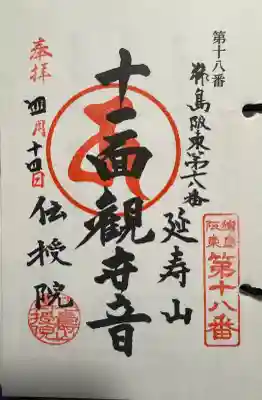 第十八番
猿島阪東第十八番
延寿山
十一面観世音
奉拝
四月十四日
伝授院
猿島
阪東
第十八番